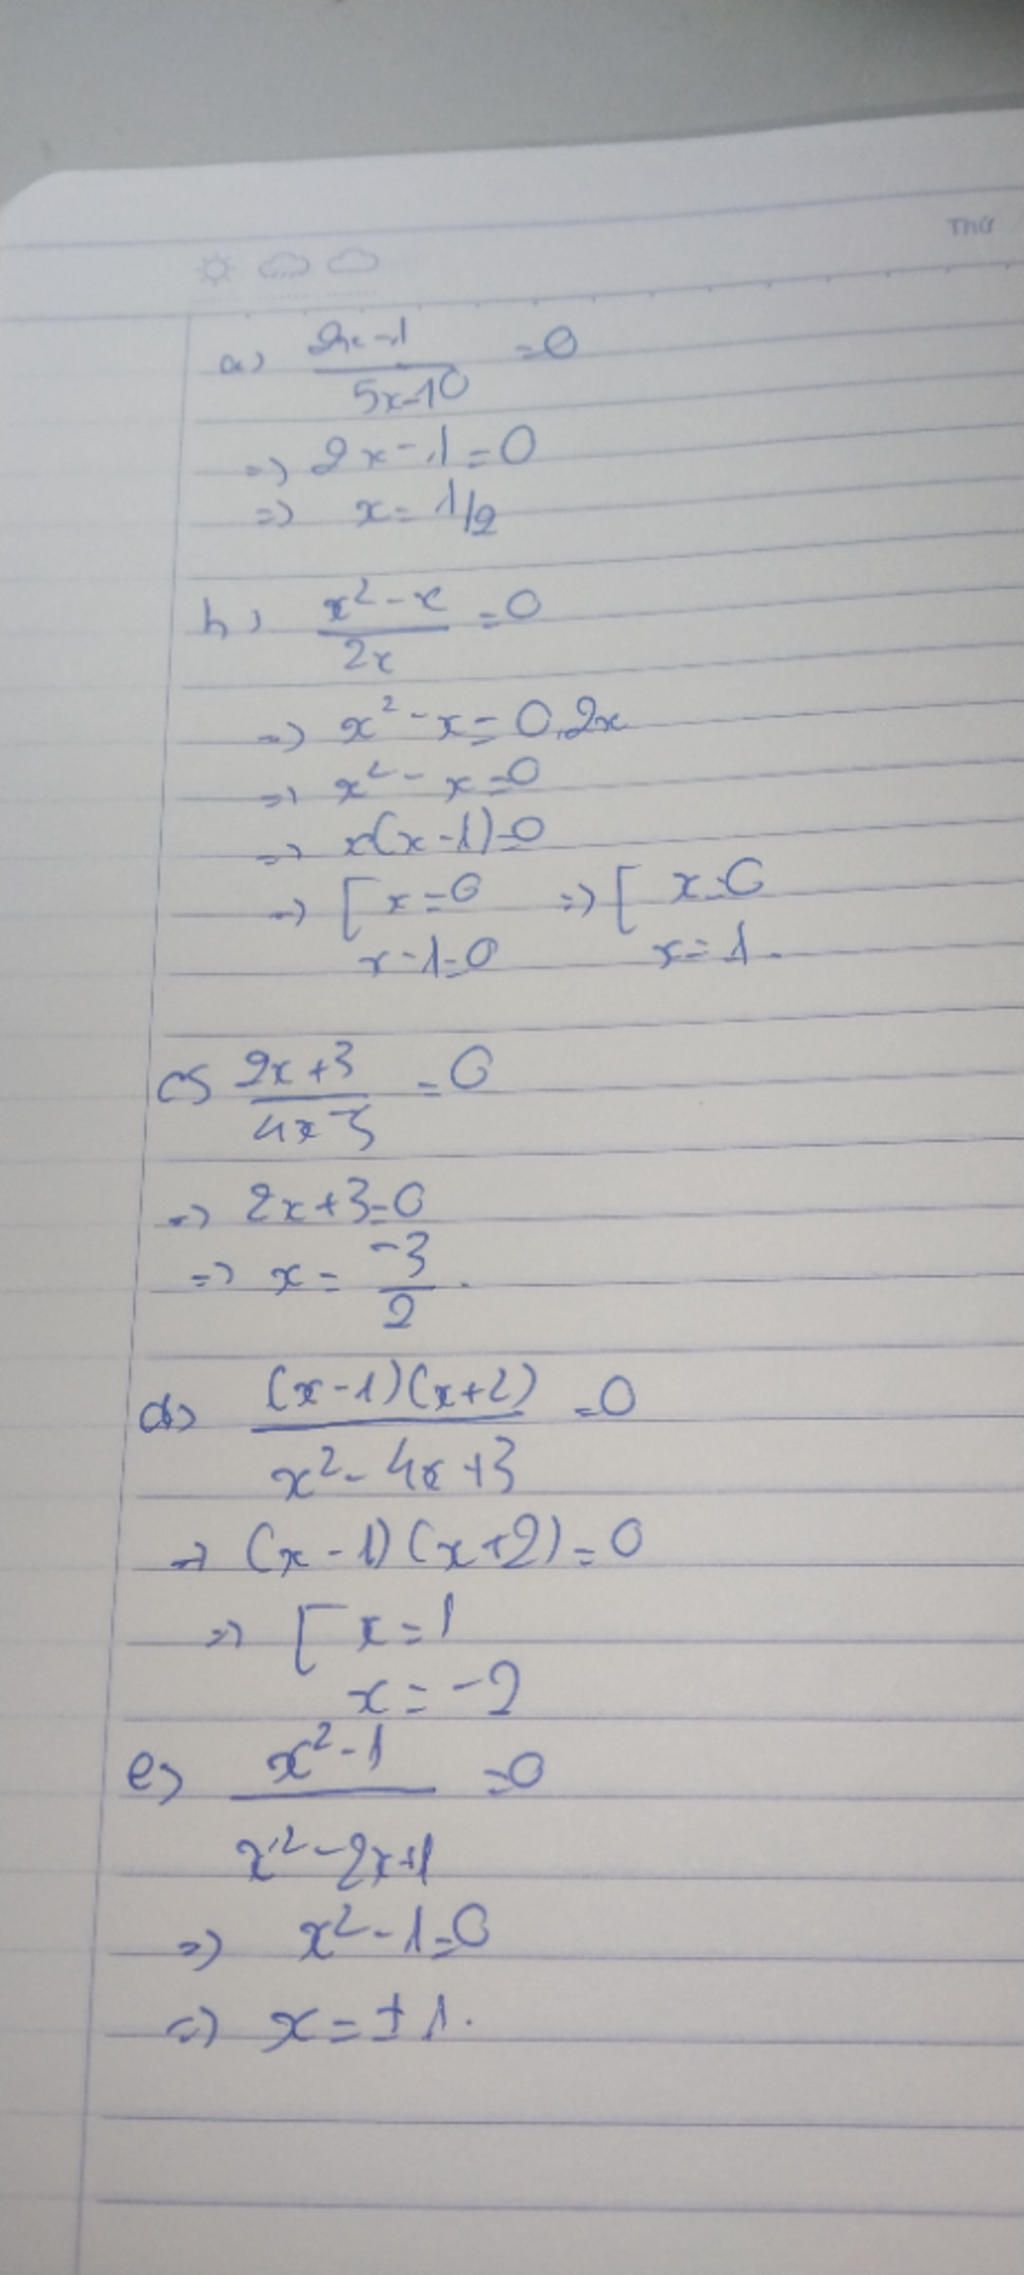 THỨ
a) (2x-1)/(5x-10) =0
=> 2x-1=0
=> x= 1/2
b) (x²-x)/(2x) =0
=> x²-x=0.2x
=> x²-x=0
=> x(x-1)=0
=> [ x=0 => [ x=0
x-1=0 x=1.
c) (2x+3)/(4x-5) =0
=> 2x+3=0
=> x= -3/2.
d) (x-1)(x+2)/(x²-4x+3) =0
=> (x-1)(x+2)=0
=> [ x=1
x=-2
e) (x²-1)/(x²-2x+1) =0
=> x²-1=0
=> x=±1.